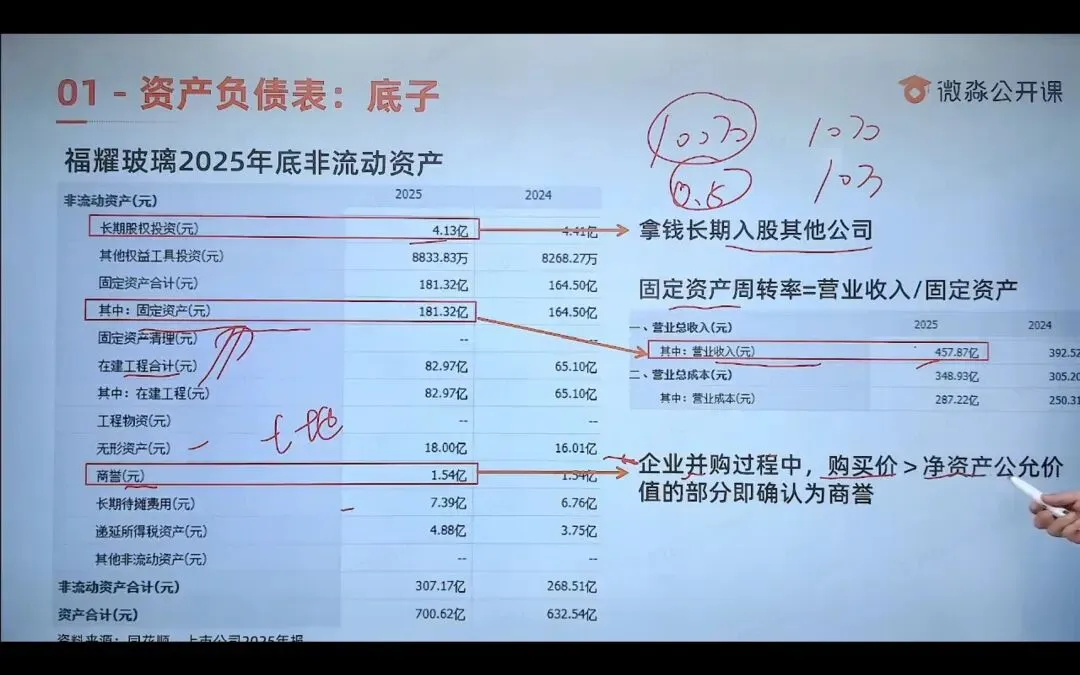 01 - 资产负债表：底子
微淼公开课
福耀玻璃2025年底非流动资产
非流动资产(元) 2025 2024
长期股权投资(元) 4.13亿 4.41亿
其他权益工具投资(元) 8833.83万 8268.27万
固定资产合计(元) 181.32亿 164.50亿
其中：固定资产(元) 181.32亿 164.50亿
固定资产清理(元) -- --
在建工程合计(元) 82.97亿 65.10亿
其中：在建工程(元) 82.97亿 65.10亿
工程物资(元) -- --
无形资产(元) 18.00亿 16.01亿
商誉(元) 1.54亿 1.54亿
长期待摊费用(元) 7.39亿 6.76亿
递延所得税资产(元) 4.88亿 3.75亿
其他非流动资产(元) -- --
非流动资产合计(元) 307.17亿 268.51亿
资产合计(元) 700.62亿 632.54亿
资料来源：同花顺，上市公司2025年报
土地
100万 10万
0.5 10万
拿钱长期入股其他公司
固定资产周转率=营业收入/固定资产
2025 2024
一、营业总收入(元)
其中：营业收入(元) 457.87亿 392.52
二、营业总成本(元) 348.93亿 305.20
其中：营业成本(元) 287.22亿 250.31
企业并购过程中，购买价＞净资产公允价
值的部分即确认为商誉